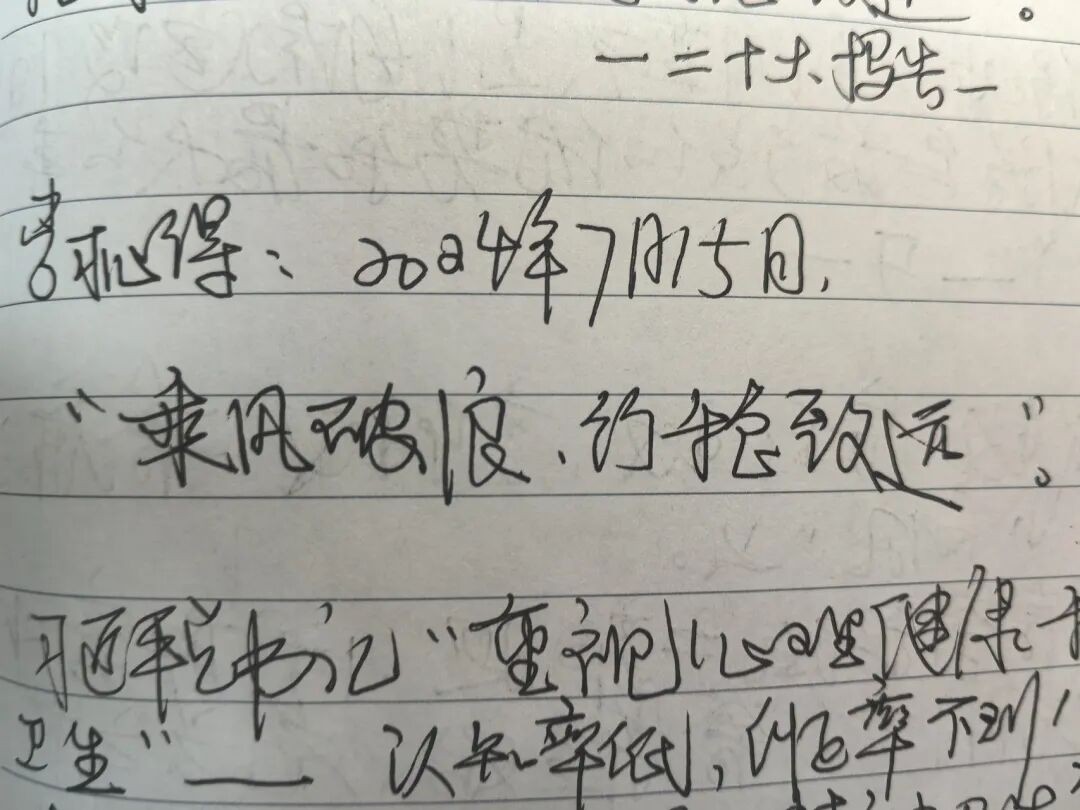 一二十大报告一
心得：2024年7月15日.
“乘风破浪、行稳致远”。
习近平总书记“重视心理健康
卫生”—— 认知率低，就诊率不到